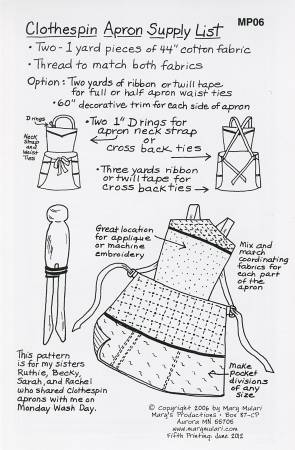 MP06
Clothespin Apron Supply List
• Two - 1 yard pieces of 44" cotton fabric
• Thread to match both fabrics
Option: Two yards of ribbon or twill tape
for full or half apron waist ties
• 60" decorative trim for each side of apron
D rings
Neck
Strap
and
Waist
Ties
• Two 1" D rings for
apron neck strap
or
cross back ties
• Three yards ribbon
or twill tape for
cross back ties
Great location
for applique
or machine
embroidery
Mix and
match
coordinating
fabrics for
each part
of the
apron
Make
pocket
divisions
of any
size
This pattern
is for my sisters
Ruthie, Becky,
Sarah, and Rachel
who shared Clothespin
aprons with me on
Monday Wash Day.
© Copyright 2006 by Marq Mulari
Marq's Productions • Box 87-CP
Aurora MN 55705
www.marqmulari.com
Fifth Printing: June 2012